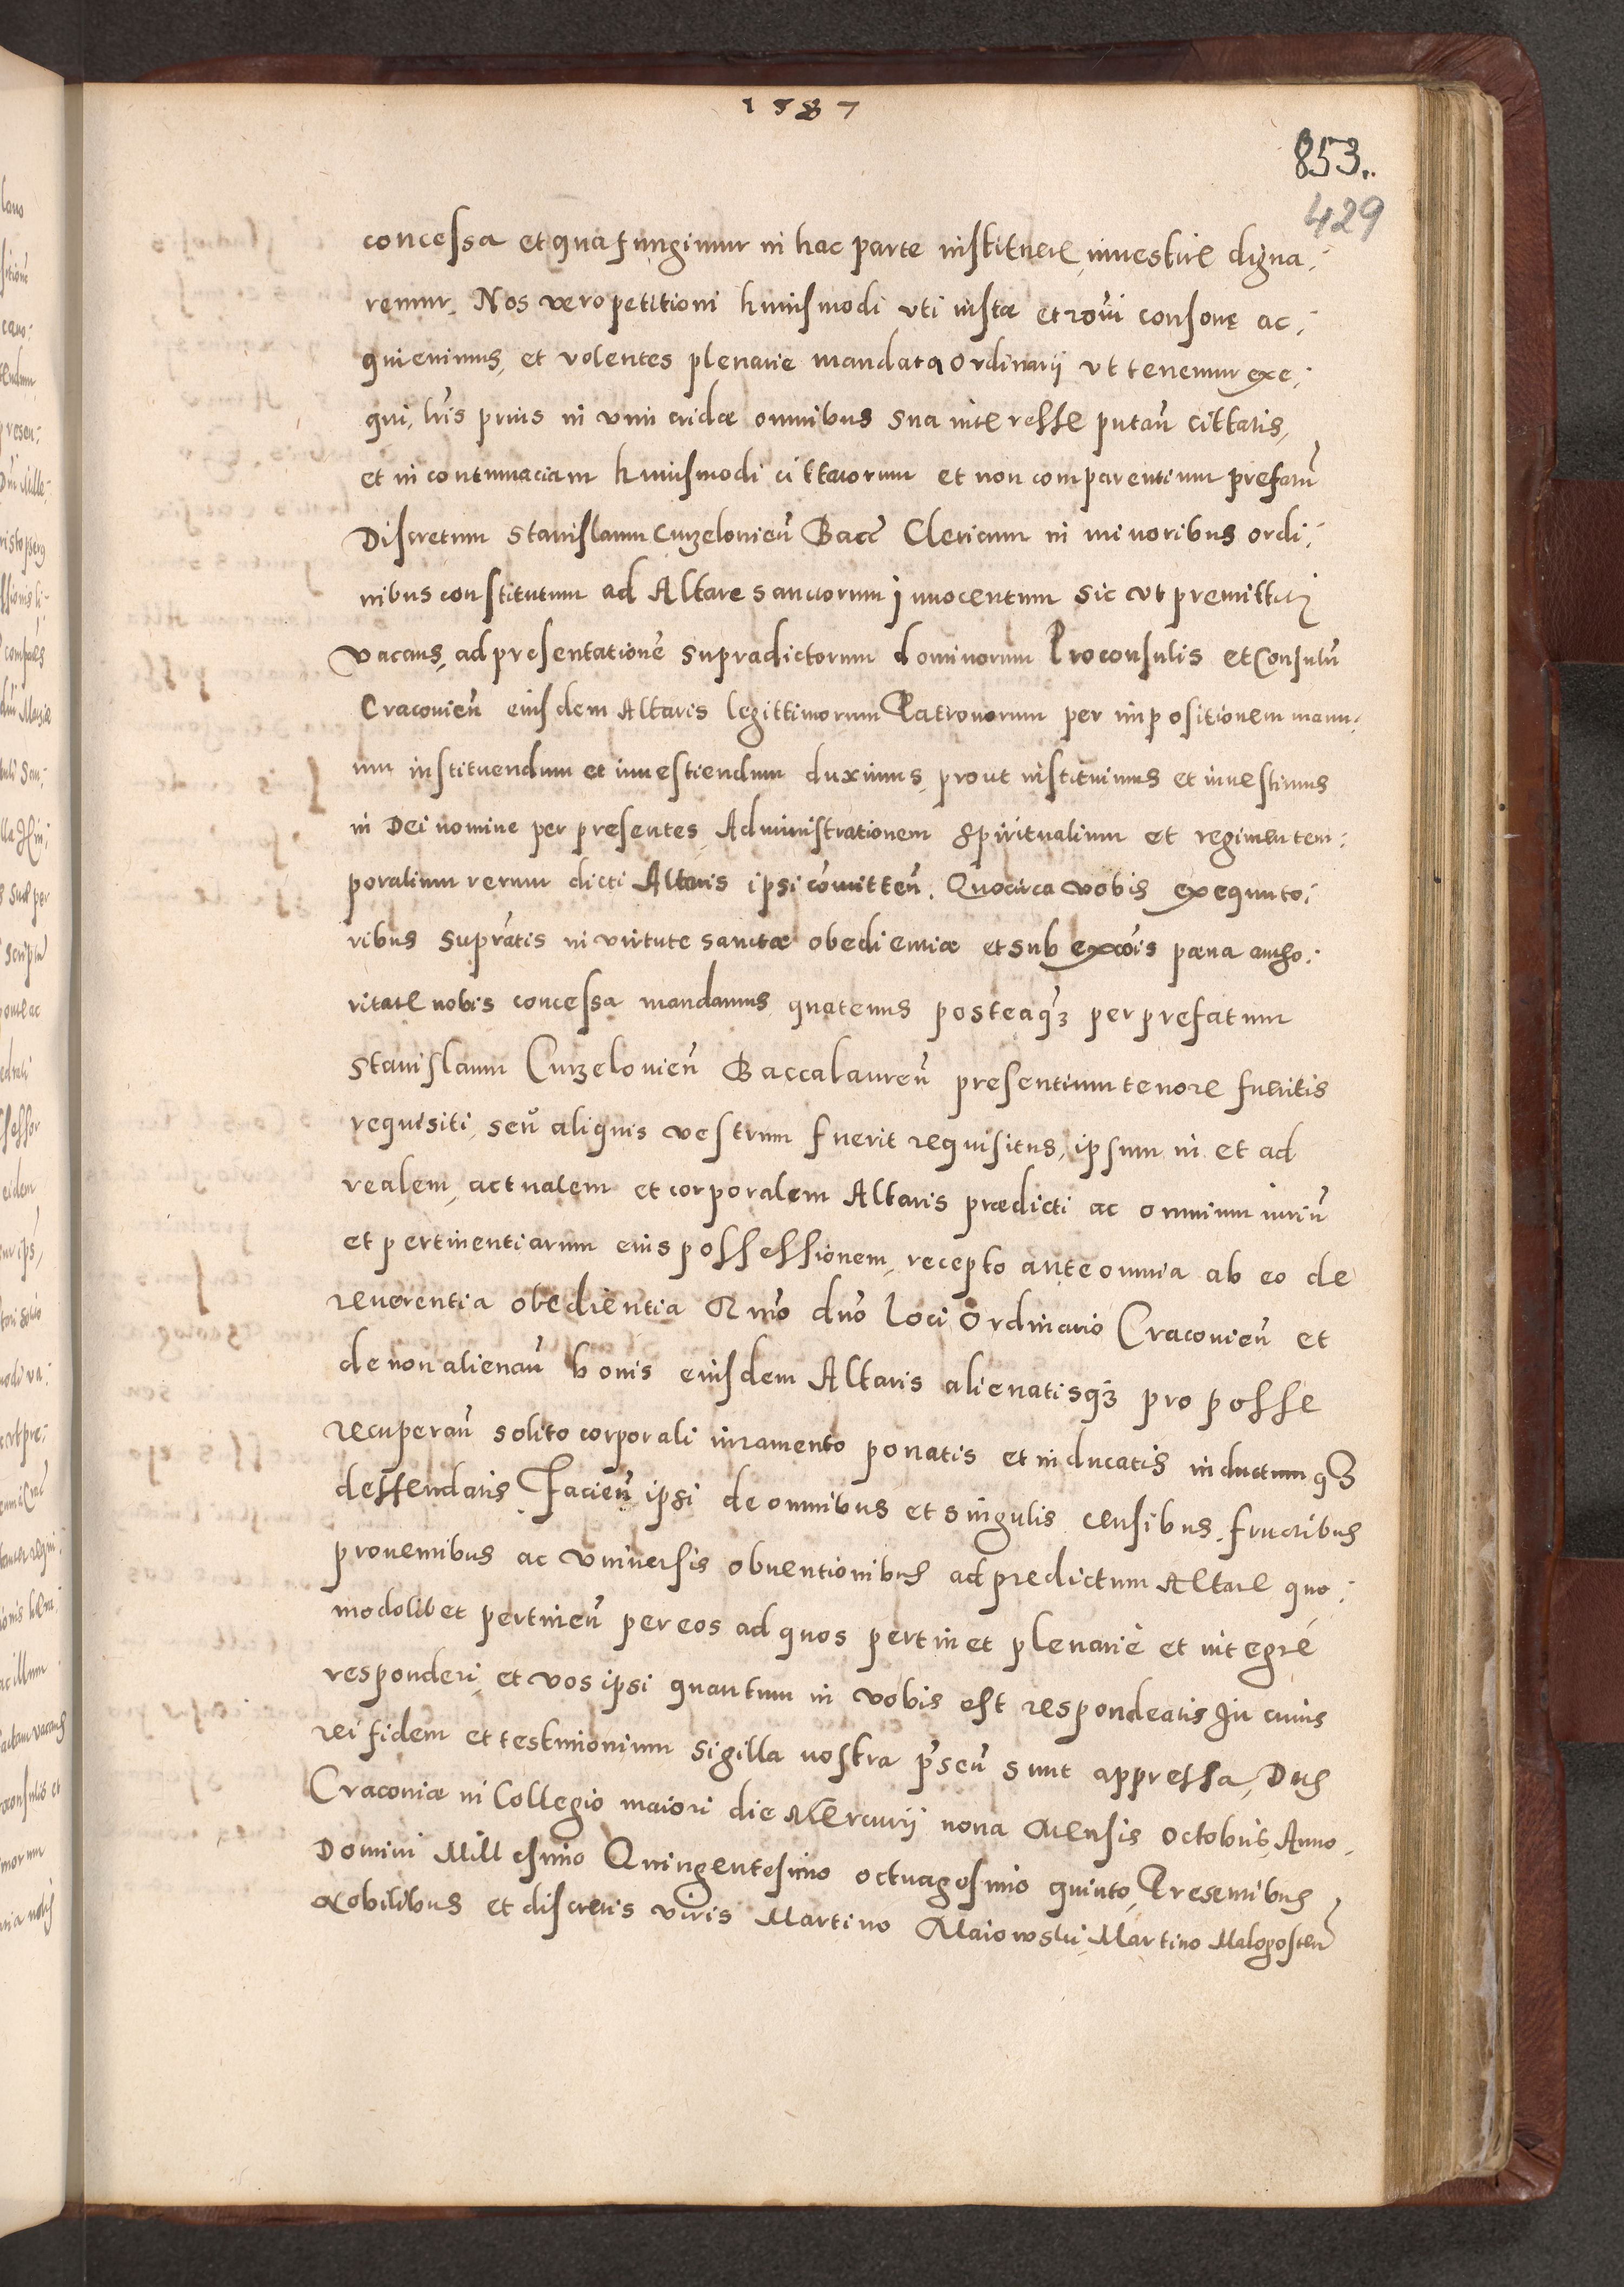 1587
853.
429
concessa et qua fungimur in hac parte instituere, inuestire digna:
remur. Nos vero petitioni huiusmodi vti iustæ et rõni consonę ac:
quieuimus, et volentes plenarie mandata Ordinarij vt tenemur exe:
qui, lr̃is prius in vim cridæ omnibus sua interesse putan̄ cittatis,
et in contumaciam huiusmodi cittatorum et non comparentium prefatū
Discretum Stanislaum Curzelouien̄ Bacc̄ Clericum in minoribus ordi:
nibus constitutum ad Altare sanctorum Innocentum sic vt premittitur
vacans, ad presentationē supradictorum dominorum Proconsulis et Consulū
Cracouien̄ eiusdem Altaris legittimorum Patronorum per impositionem manu:
um instituendum et inuestiendum duximus, prout instituimus et inuestimus
in Dei nomine per presentes, Administrationem spiritualium et regimen tem:
poralium rerum dicti Altaris ipsi cōmitten̄. Quocirca vobis exequuto:
ribus supratis in virtute sanctæ obedientiæ et sub excōis pæna autho:
ritate nobis concessa mandamus quatenus posteaq̄ȝ per prefatum
Stanislaum Curzelouien̄ Baccalaureū presentium tenore fueritis
requisiti, seū aliquis vestrum fuerit requisitus, ipsum in et ad
realem, actualem et corporalem Altaris prædicti ac omnium iuriū
et pertinentiarum eius possessionem, recepto ante omnia ab eo de
reuerentia obedientia Rmõ dño loci Ordinario Cracouien̄ et
de non alienan̄ bonis eiusdem Altaris alienatisqȝ pro posse
recuperan̄ solito corporali iuramento ponatis et inducatis inductumqȝ
deffendatis Facien̄ ipsi de omnibus et singulis censibus fructibus
prouentibus ac vniuersis obuentionibus ad predictum Altare quo:
modolibet pertinen̄ per eos ad quos pertinet plenariè et integrè
responderi, et vos ipsi quantum in vobis est respondeatis In cuius
rei fidem et testimonium sigilla nostra p̄sen̄ sunt appressa, Dat
Cracouiæ in Collegio maiori die Mercurij nona Mensis Octobris, Anno
Domini Millesimo Quingentesimo octuagesimo quinto, Presentibus
Nobilibus et discretis viris Martino Maiowski, Martino Malogosten̄